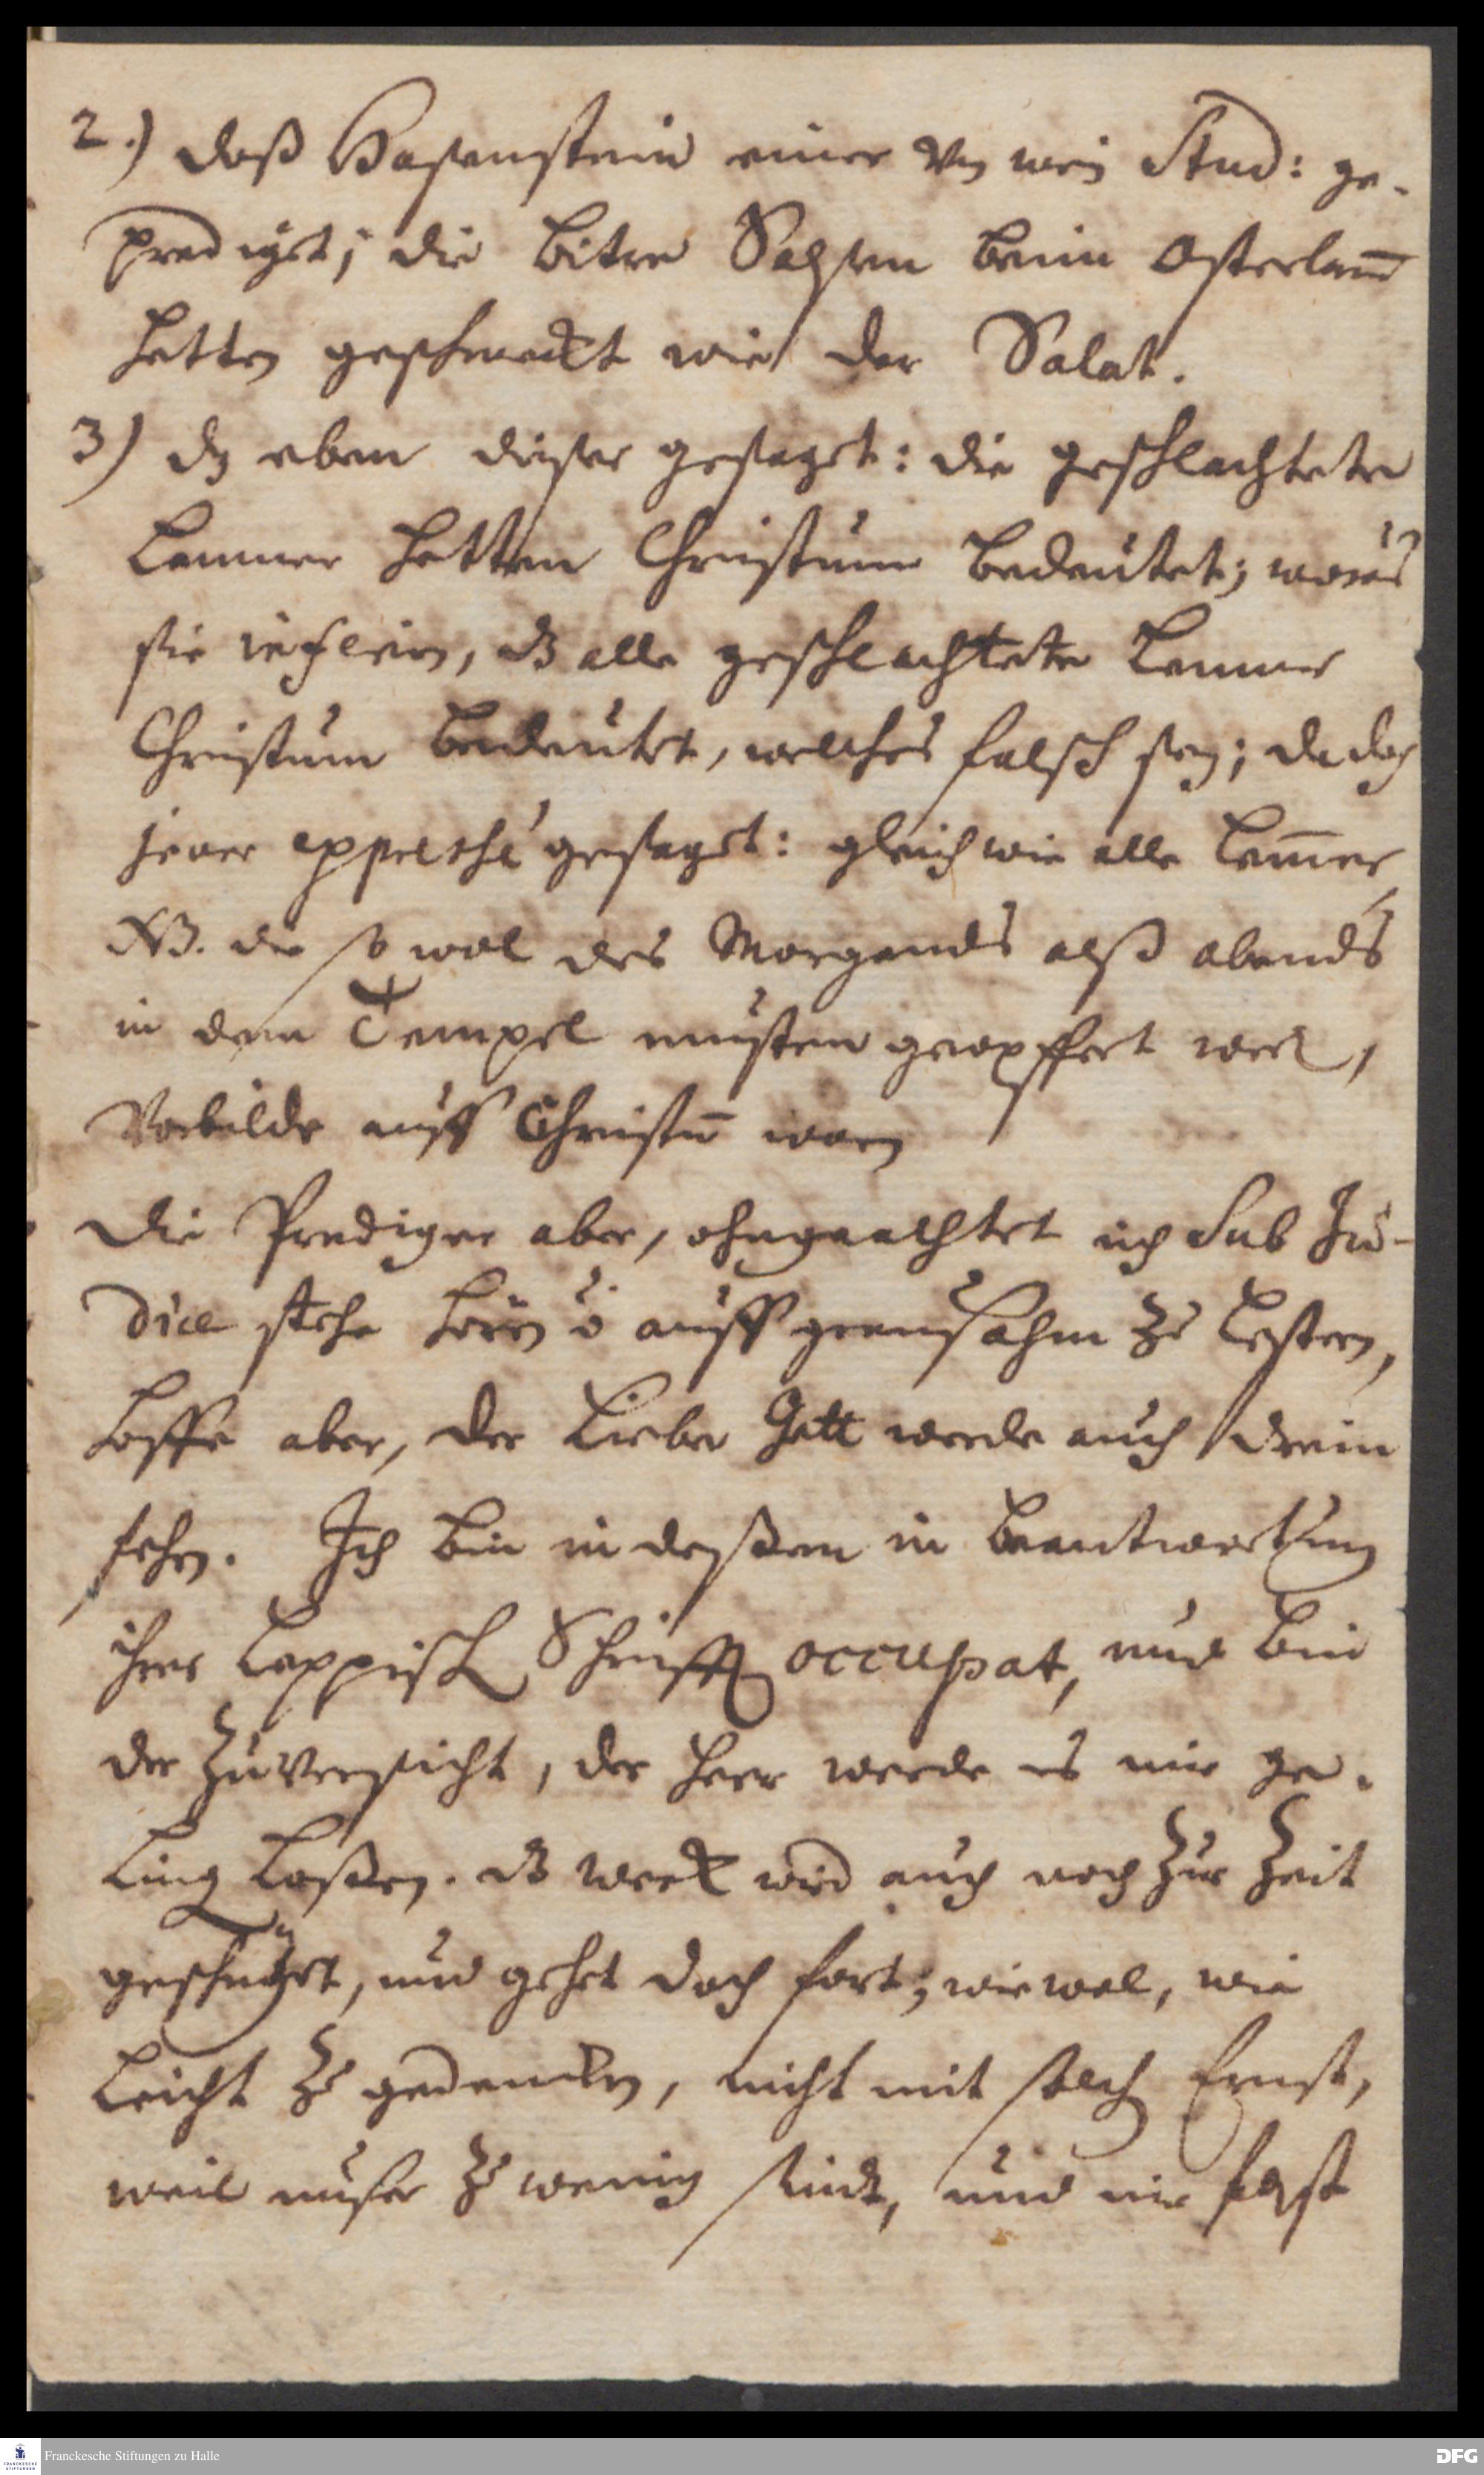 2.) daß Hasenstein einer von mein Stud: ge-
prediget; die bitre Salsen beim Osterlam̅
hetten geschmeckt wie der Salat.
3) dz eben dieser gesaget: die geschlachtete
Lemmer hetten Christum bedeutet; woraus
sie inferirn, dz alle geschlachtete Lemmer
Christum bedeutet, welches falsch sey; da doch
jener expressè gesaget: gleich wie alle Lem̅er,
NB. die so wol des Morgends alß abends
in dem Tempel musten geopffert werd,
Vorbilde auff Christu̅ waren
Die Prediger aber, ohngeachtet ich Sub Ju-
dice stehe hören nicht auff grausahm zu lestern,
hoffe aber, der Liebe Gott werde auch drein
sehen. Ich bin in deßen in beantwortung
ihrer Leppisch Schrifften occupat, und bin
der Zuversicht, der Herr werde es mir ge-
ling laßen. dz werck wird auch noch zur Zeit
gesucht, und gehet doch fort; wie wol, wie
Leicht zu gedencken, nicht mit solch Ernst,
weil unser zu wenig sind, und mir fast
Franckesche Stiftungen zu Halle
DFG